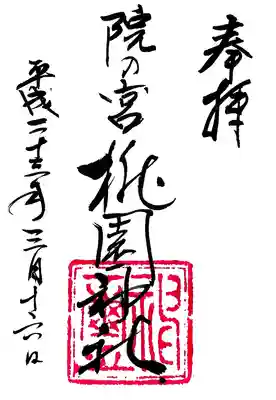 奉拝
院の宮 桃園神社
平成二十二年三月十六日